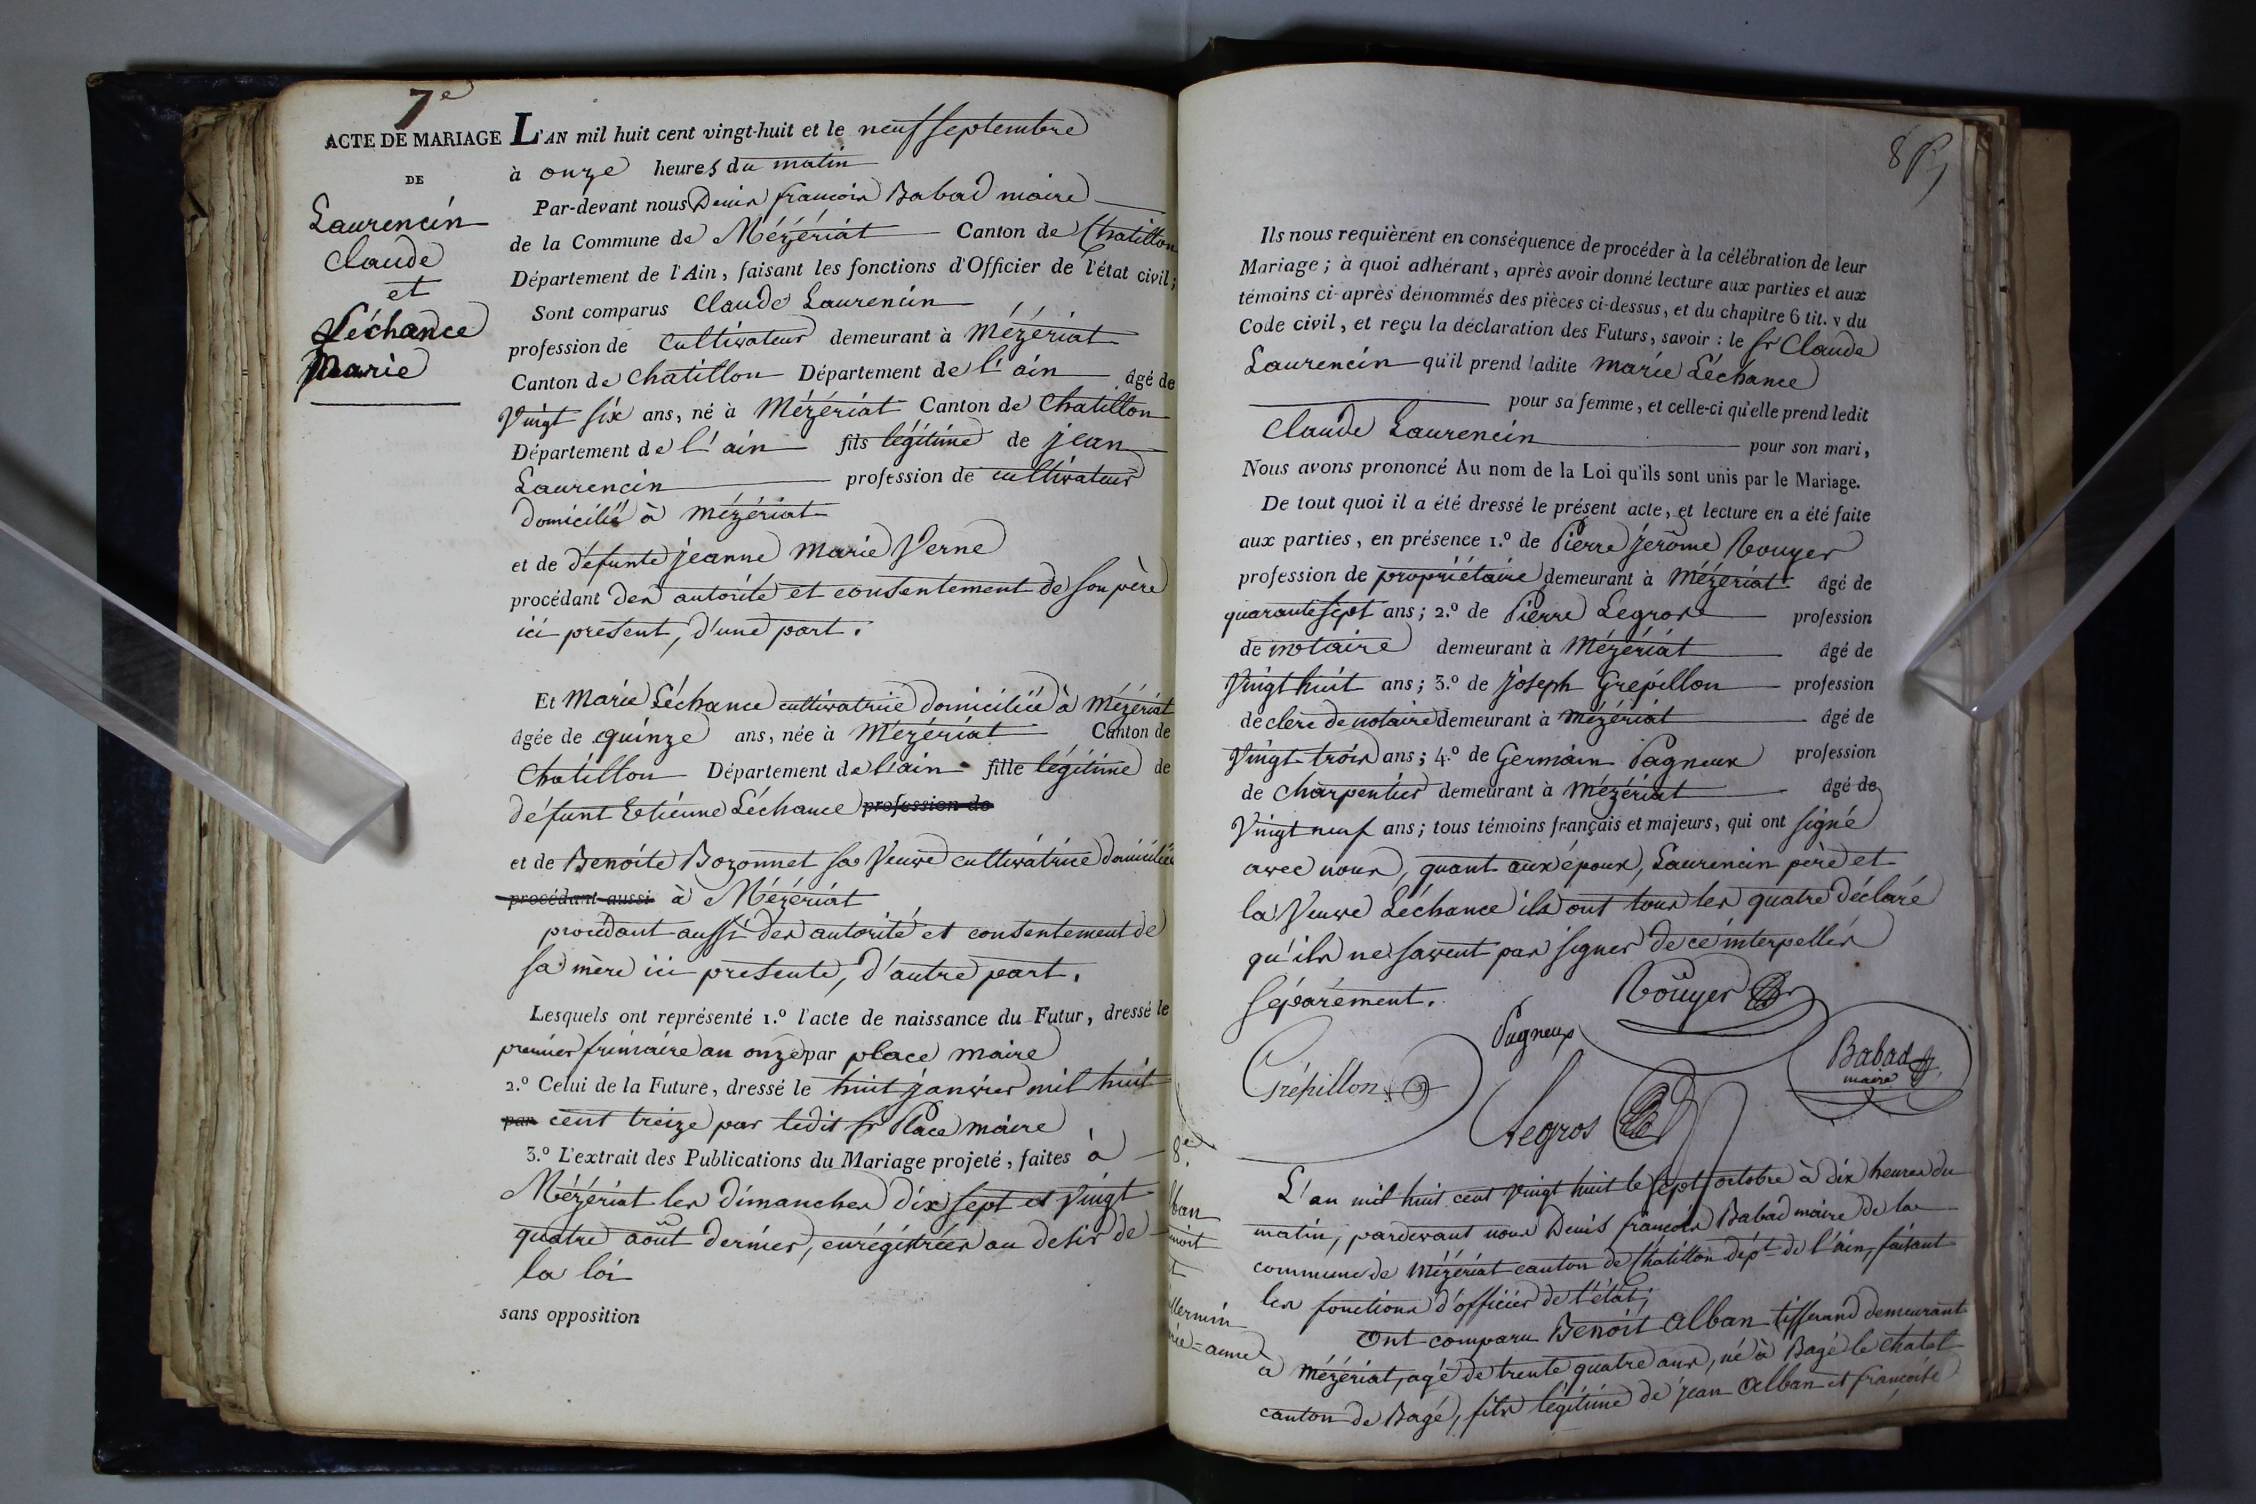 7e
ACTE DE MARIAGE
DE
Laurencin
Claude
et
Léchance
Marie
L'AN mil huit cent vingt-huit et le neuf septembre
à onze heures du matin
Par-devant nous Denis françois Babad maire
de la Commune de Mézériat Canton de Chatillon
Département de l'Ain, faisant les fonctions d'Officier de l'état civil;
Sont comparus Claude Laurencin
profession de cultivateur demeurant à Mézériat
Canton de Chatillon Département de l'ain âgé de
Vingt six ans, né à Mézériat Canton de Chatillon
Département de l'ain fils légitime de jean
Laurencin profession de cultivateur
domicilié à Mézériat
et de défunte jeanne Marie Verne
procédant des autorité et consentement de son père
ici present, d'une part.
Et Marie Léchance cultivatrice domiciliée à Mézériat
âgée de quinze ans, née à Mézériat Canton de
Chatillon Département de l'ain fille légitime de
défunt Etienne Léchance profession de
et de Benoite Bozonnet sa Veuve cultivatrice domiciliée
procédant aussi à Mézériat
procédant aussi des autorité et consentement de
sa mère ici presente, d'autre part.
Lesquels ont représenté 1.º l'acte de naissance du Futur, dressé le
premier frimaire an onze par place maire
2.º Celui de la Future, dressé le huit janvier mil huit
par cent treize par ledit sr Place maire
3.º L'extrait des Publications du Mariage projeté, faites à
Mézériat les dimanches dix sept et Vingt
quatre août dernier, enrégistrées au desir de
la loi
sans opposition
8e
ban
noit
t
llermin
rie=anne
Ils nous requièrent en conséquence de procéder à la célébration de leur
Mariage; à quoi adhérant, après avoir donné lecture aux parties et aux
témoins ci-après dénommés des pièces ci-dessus, et du chapitre 6 tit. v du
Code civil, et reçu la déclaration des Futurs, savoir: le sr Claude
Laurencin qu'il prend ladite Marie Léchance
pour sa femme, et celle-ci qu'elle prend ledit
Claude Laurencin pour son mari,
Nous avons prononcé Au nom de la Loi qu'ils sont unis par le Mariage.
De tout quoi il a été dressé le présent acte, et lecture en a été faite
aux parties, en présence 1.º de Pierre Jerôme Rouyer
profession de propriétaire demeurant à Mézériat âgé de
quarante sept ans; 2.º de Pierre Legros profession
de notaire demeurant à Mézériat âgé de
Vingt huit ans; 3.º de Joseph Grépillon profession
de clerc de notaire demeurant à Mézériat âgé de
Vingt trois ans; 4.º de Germain Pagneux profession
de Charpentier demeurant à Mézériat âgé de
Vingt neuf ans; tous témoins français et majeurs, qui ont signé
avec nous, quant aux époux, Laurencin père et
la Veuve Léchance ils ont tous les quatre déclaré
qu'ils ne savent pas signer de ce interpellés
séparément.
Rouyer
Pagneux
Grépillon
Babad
maire
Legros
L'an mil huit cent vingt huit le sept octobre à dix heures du
matin, pardevant nous Denis françois Babad maire de la
commune de Mézériat canton de Chatillon dépt de l'ain, faisant
les fonctions d'officier de l'état;
Ont comparu Benoit Alban tisserand demeurant
à Mézériat, agé de trente quatre ans, né à Bagé le chatel
canton de Bagé, fils légitime de jean Alban et françoise